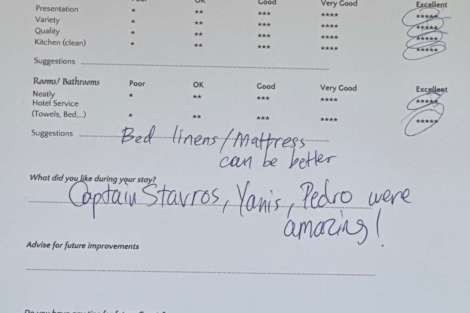 OK Good Very Good Excellent
Presentation * ** *** **** *****
Variety * ** *** **** *****
Quality * ** *** **** *****
Kitchen (clean) * ** *** **** *****
Suggestions
Rooms/ Bathrooms Poor OK Good Very Good Excellent
Neatly * ** *** **** *****
Hotel Service
(Towels, Bed,..) * ** *** **** *****
Suggestions Bed linens/Mattress
can be better
What did you like during your stay?
Captain Stavros, Yanis, Pedro were
amazing!
Advise for future improvements